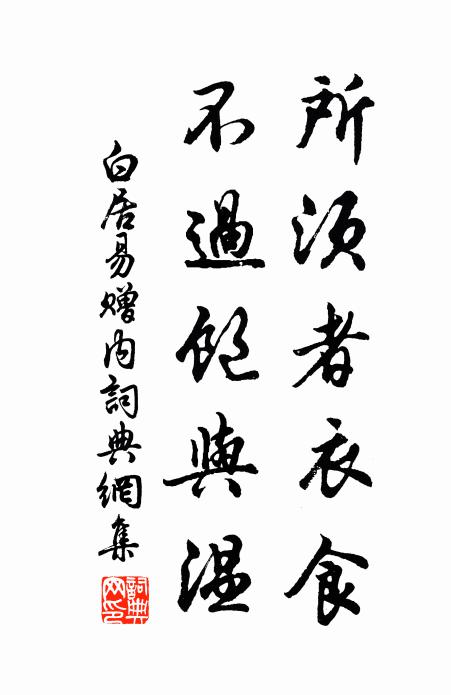 所須者衣食
不過飽與温
白居易贈内詞典網集
詞典網印